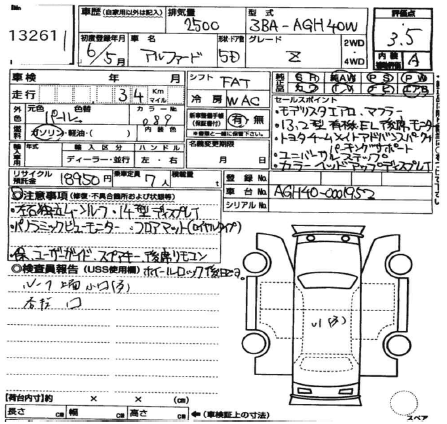 13261
車歴 (自家用以外は記入) 排気量 2500 型式 3BA-AGH40W 評価点 3.5
初度登録年月 6/5月 車名 アルファード 形状・ドア数 5D グレード Z 2WD 4WD 内装 A
車検 年 月 シフト FAT 純正品 SR 純AW PS PW
走行 34 Km マイル 冷房 WAC カワ TV ナビ エアB
外色 元色 色替 カラーNo. 089 新車整備手帳 (保証書付) 有・無 セールスポイント
パール
燃料 ガソリン・軽油・( ) 内装色 ※整備手帳と一緒に保管して下さい
・モデリスタエアロ、マフラー
・13.2型有機EL後席モニター
・トヨタチームメイトアドバンスドパーク
・パーキングサポート
・ユニバーサルステップ
・カラーヘッドアップディスプレイ
輸入車用 年式 輸入区分 ハンドル 名義変更期限
ディーラー・並行 左・右 月 日
リサイクル預託金 18950円 乗車定員 7人 積載量 登録No.
車台No. AGH40-0001952
シリアルNo.
注意事項 (修復・不具合箇所および状態等)
・左右独立ムーンルーフ・14型ディスプレイ
・パノラミックビューモニター・フロアマット(ロイヤルタイプ)
・保、ユーザーガイド、スペアキー、後席リモコン
◎検査員報告 (USS使用欄) ホイールロック後日
【荷台内寸】約 × × (cm)
長さ cm 幅 cm 高さ cm ←(車検証上の寸法)
スペア